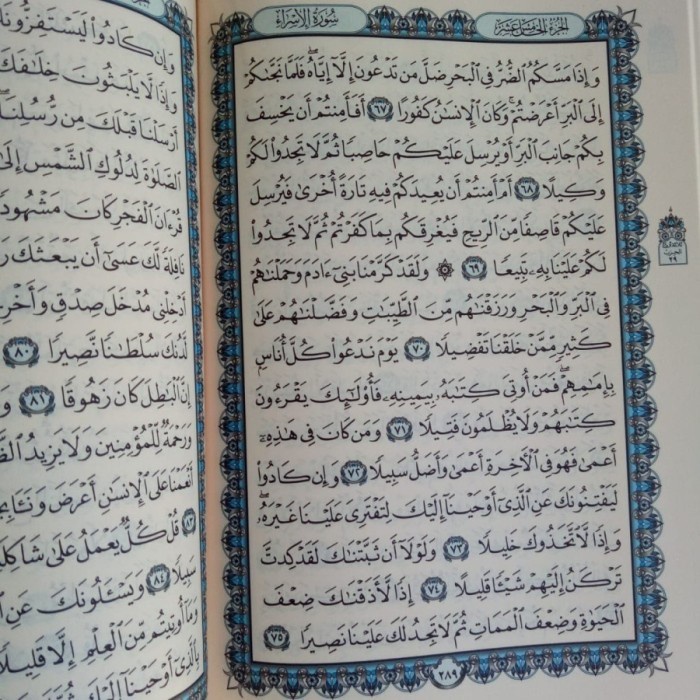 الجزء الخامس عشر
سورة الإسراء
وَإِذَا مَسَّكُمُ ٱلضُّرُّ فِي ٱلْبَحْرِ ضَلَّ مَن تَدْعُونَ إِلَّآ إِيَّاهُ فَلَمَّا نَجَّىٰكُمْ
إِلَى ٱلْبَرِّ أَعْرَضْتُمْ وَكَانَ ٱلْإِنسَٰنُ كَفُورًا ٦٧ أَفَأَمِنتُمْ أَن يَخْسِفَ
بِكُمْ جَانِبَ ٱلْبَرِّ أَوْ يُرْسِلَ عَلَيْكُمْ حَاصِبًا ثُمَّ لَا تَجِدُوا۟ لَكُمْ
وَكِيلًا ٦٨ أَمْ أَمِنتُمْ أَن يُعِيدَكُمْ فِيهِ تَارَةً أُخْرَىٰ فَيُرْسِلَ
عَلَيْكُمْ قَاصِفًا مِّنَ ٱلرِّيحِ فَيُغْرِقَكُم بِمَا كَفَرْتُمْ ثُمَّ لَا تَجِدُوا۟
لَكُمْ عَلَيْنَا بِهِۦ تَبِيعًا ٦٩ ۞ وَلَقَدْ كَرَّمْنَا بَنِيٓ ءَادَمَ وَحَمَلْنَٰهُمْ
فِي ٱلْبَرِّ وَٱلْبَحْرِ وَرَزَقْنَٰهُم مِّنَ ٱلطَّيِّبَٰتِ وَفَضَّلْنَٰهُمْ عَلَىٰ
كَثِيرٍ مِّمَّنْ خَلَقْنَا تَفْضِيلًا ٧٠ يَوْمَ نَدْعُوا۟ كُلَّ أُنَاسٍۭ
بِإِمَٰمِهِمْ ۖ فَمَنْ أُوتِيَ كِتَٰبَهُۥ بِيَمِينِهِۦ فَأُو۟لَٰٓئِكَ يَقْرَءُونَ
كِتَٰبَهُمْ وَلَا يُظْلَمُونَ فَتِيلًا ٧١ وَمَن كَانَ فِي هَٰذِهِۦٓ
أَعْمَىٰ فَهُوَ فِي ٱلْءَاخِرَةِ أَعْمَىٰ وَأَضَلُّ سَبِيلًا ٧٢ وَإِن كَادُوا۟
لَيَفْتِنُونَكَ عَنِ ٱلَّذِيٓ أَوْحَيْنَآ إِلَيْكَ لِتَفْتَرِيَ عَلَيْنَا غَيْرَهُۥ ۖ
وَإِذًا لَّٱتَّخَذُوكَ خَلِيلًا ٧٣ وَلَوْلَآ أَن ثَبَّتْنَٰكَ لَقَدْ كِدتَّ
تَرْكَنُ إِلَيْهِمْ شَيْـًٔا قَلِيلًا ٧٤ إِذًا لَّأَذَقْنَٰكَ ضِعْفَ
ٱلْحَيَوٰةِ وَضِعْفَ ٱلْمَمَاتِ ثُمَّ لَا تَجِدُ لَكَ عَلَيْنَا نَصِيرًا ٧٥
٢٨٩
وَإِن كَادُوا۟ لَيَسْتَفِزُّونَ
وَإِذًا لَّا يَلْبَثُونَ خِلَٰفَكَ
أَرْسَلْنَا قَبْلَكَ مِن رُّسُلِنَا
ٱلصَّلَوٰةَ لِدُلُوكِ ٱلشَّمْسِ إِلَىٰ
قُرْءَانَ ٱلْفَجْرِ كَانَ مَشْهُودًا
نَافِلَةً لَّكَ عَسَىٰٓ أَن يَبْعَثَكَ
أَدْخِلْنِي مُدْخَلَ صِدْقٍ وَأَخْرِ
لَّدُنكَ سُلْطَٰنًا نَّصِيرًا ٨٠
إِنَّ ٱلْبَٰطِلَ كَانَ زَهُوقًا ٨١
وَرَحْمَةٌ لِّلْمُؤْمِنِينَ وَلَا يَزِيدُ
أَنْعَمْنَا عَلَى ٱلْإِنسَٰنِ أَعْرَضَ وَنَـَٔا بِجَ
٨٣ قُلْ كُلٌّ يَعْمَلُ عَلَىٰ شَاكِلَ
سَبِيلًا ٨٤ وَيَسْـَٔلُونَكَ عَنِ
وَمَآ أُوتِيتُم مِّنَ ٱلْعِلْمِ إِلَّا قَلِيلًا
بِٱلَّذِيٓ أَوْحَيْنَآ إِلَيْكَ